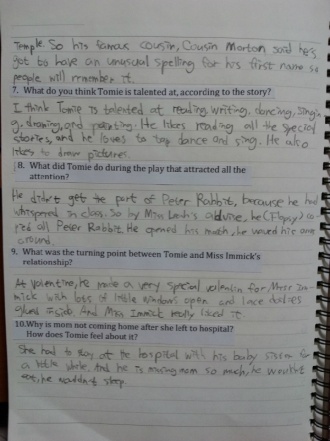 Temple. So his famous cousin, Cousin Morton said he's
got to have an unusual spelling for his first name so
people will remember it.
7. What do you think Tomie is talented at, according to the story?
I think Tomie is talented at reading, writing, dancing, singin
g, drawing, and painting. He likes reading all the special
stories, and he loves to tap dance and sing. He also
likes to draw pictures.
8. What did Tomie do during the play that attracted all the
attention?
He didn't get the part of Peter Rabbit, because he had
whispered in class. So by Miss advise, he (Flopsy) co
pied all Peter Rabbit. He opened his mouth, he waved his arm
around.
9. What was the turning point between Tomie and Miss Immick's
relationship?
At valentine, he made a very special valentin for Miss Im
mick with lots of little windows open and lace doilies
glued inside. And Miss Immick really liked it.
10. Why is mom not coming home after she left to hospital?
How does Tomie feel about it?
She had to stay at the hospital with his baby sister for
a little while. And he is missing mom so much, he wouldn't
eat, he wouldn't sleep.